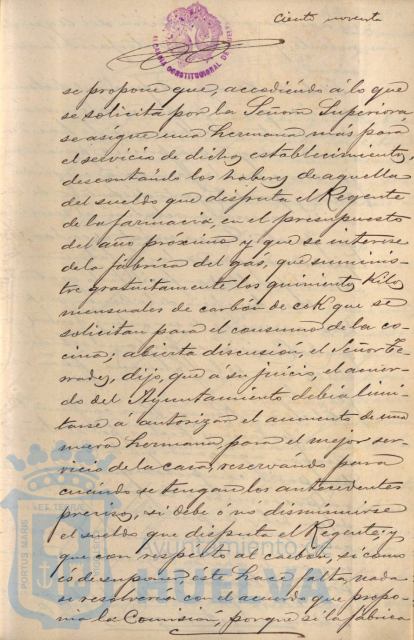 Ciento noventa
ALCALDIA CONSTITUCIONAL DE
se propone que, accediendo á lo que
se solicita por la Señora Superiora
se asigne una hermana mas para
el servicio de dicho establecimiento,
descontando los haberes de aquella
del sueldo que disfruta el Regente
de la farmacia, en el presupuesto
del año próximo y que se interese
de la fábrica del gás, que suminis-
tre gratuitamente los quinientos Kilos
mensuales de carbón de cok que se
solicitan para el consumo de la co-
cina; abierta discusión, el Señor
dijo, que á su juicio, el acuer-
do del Ayuntamiento debia limi-
tarse á autorizar el aumento de una
nueva hermana para el mejor ser-
vicio de la casa, reservando para
cuándo se tengan los antecedentes
precisos, si debe ó nó disminuirse
el sueldo que disfruta el Regente; y
que con respecto al carbón, si como
es de suponer, este hace falta, nada
se resolveria con el acuerdo que propo-
nia la Comisión, porque si la fábrica
PORTUS MARIS
Ayuntamiento de
HUELVA